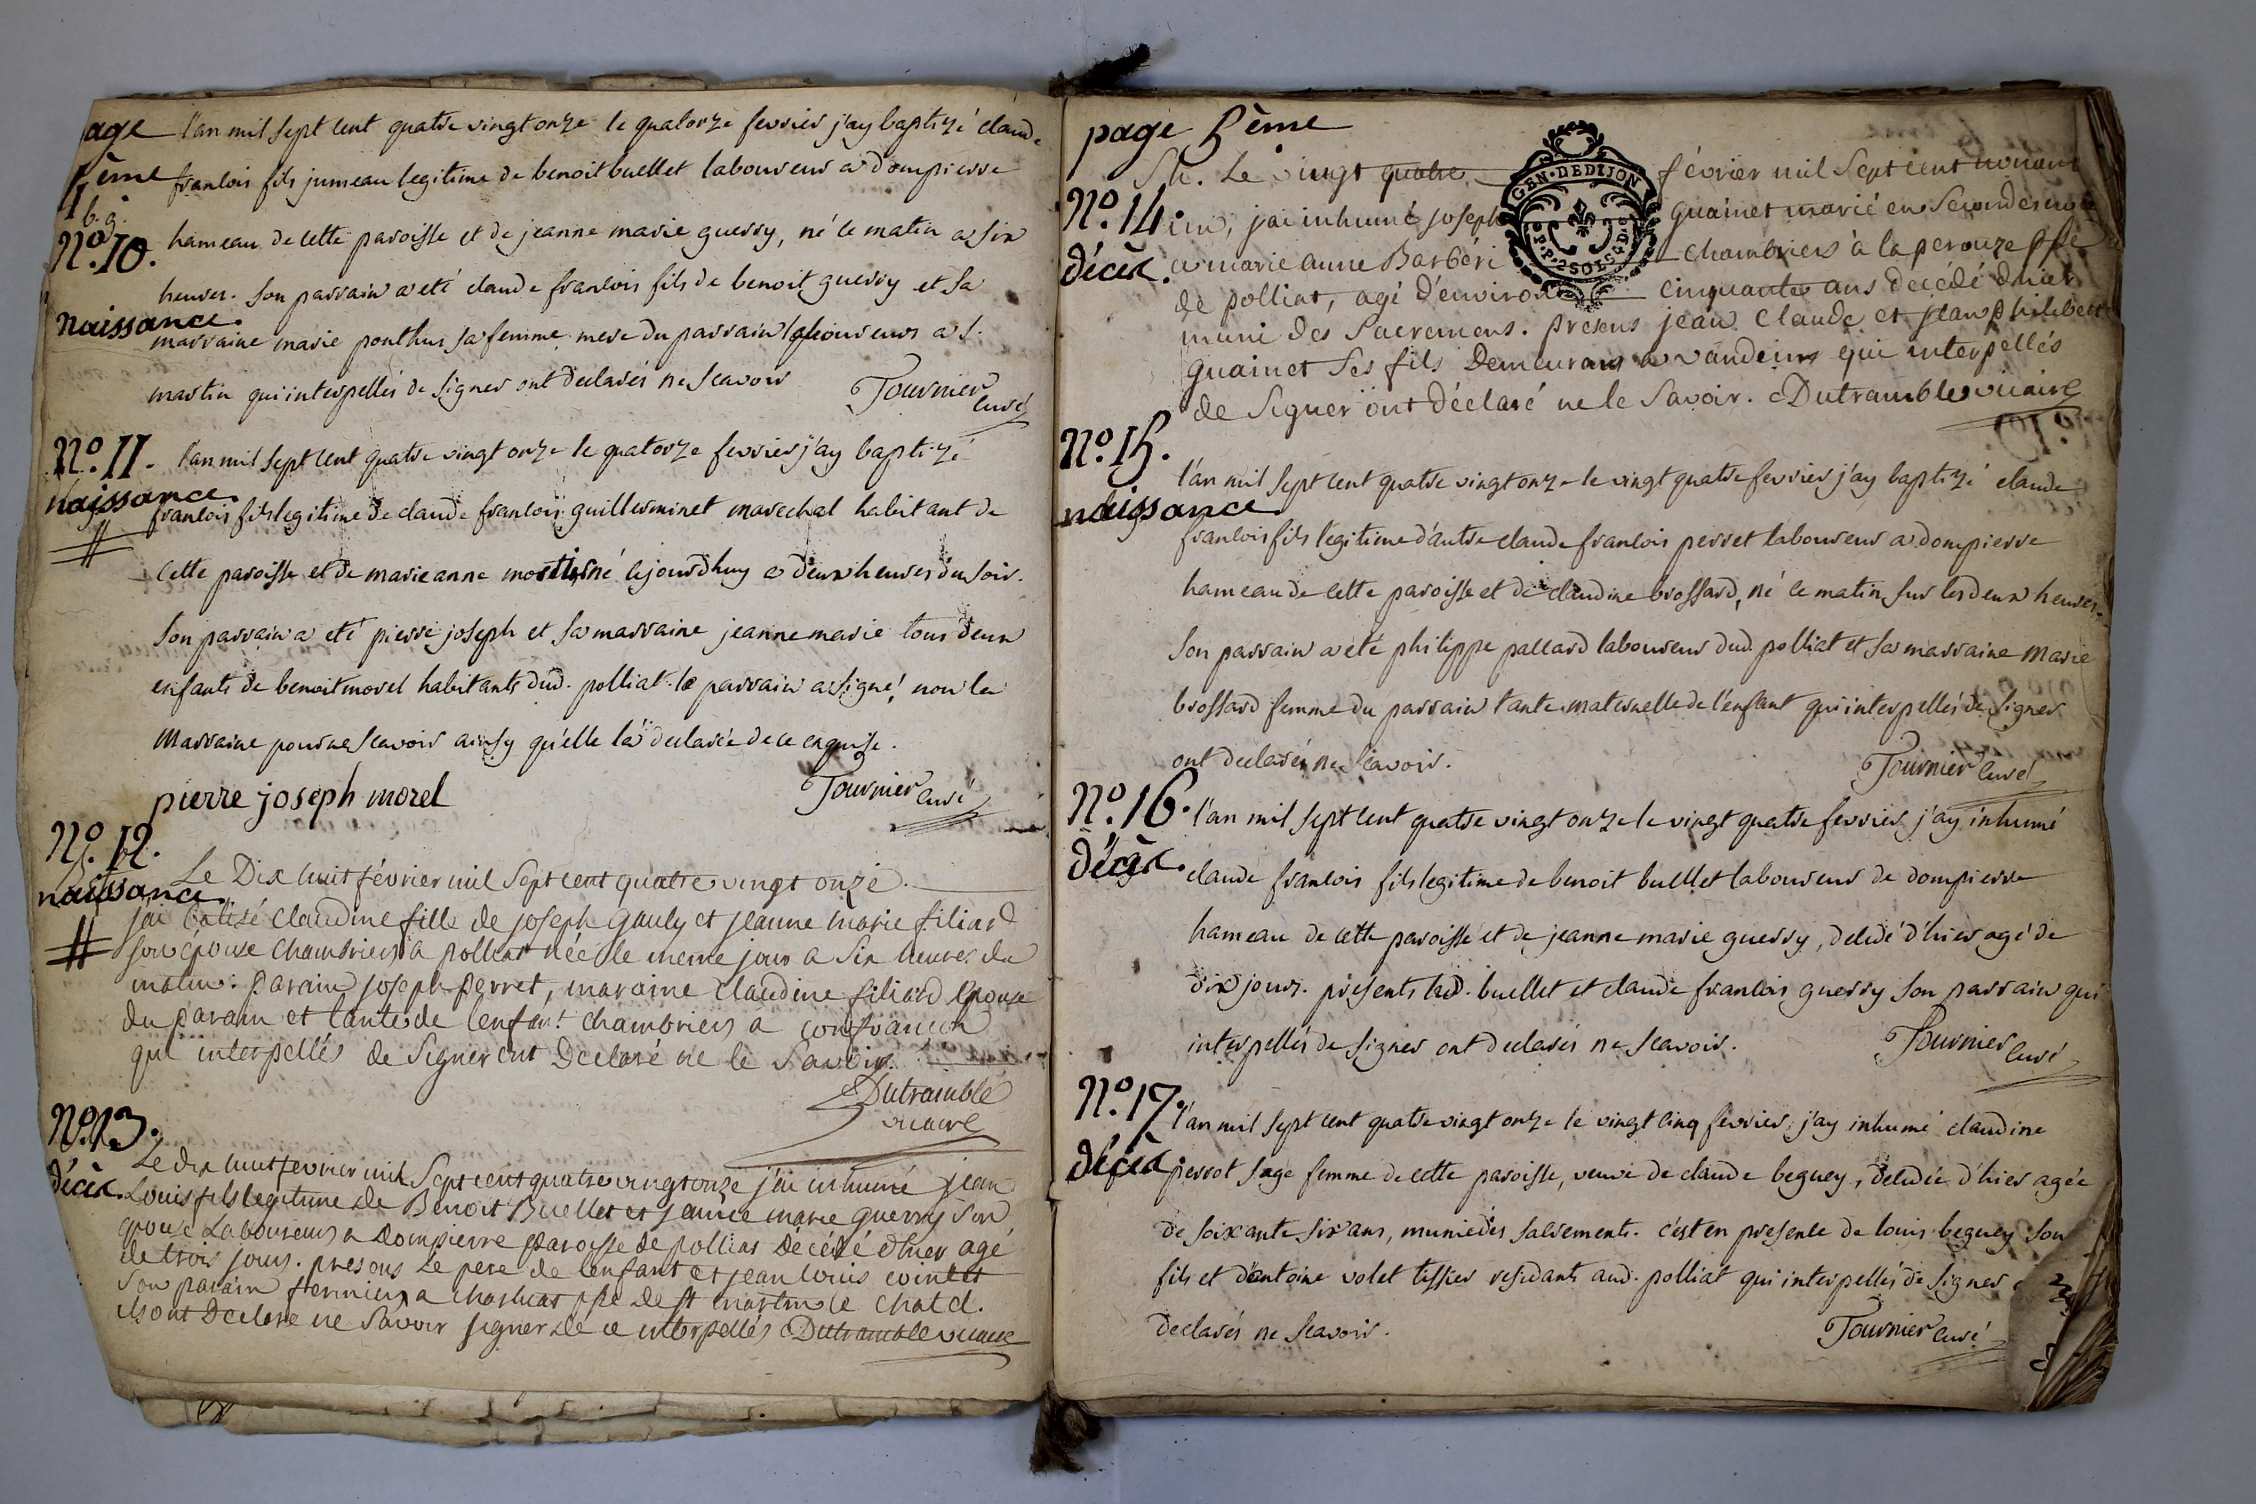 page
ème
l'an mil sept cent quatre vingt onze le quatorze fevrier j'ay baptizé claude
francois fils jumeau legitime de benoit buellet laboureur a dompierre
b. g.
N.º 10.
hameau de cette paroisse et de jeanne marie guerry, né ce matin a six
heures. son parrain a eté claude francois fils de benoit guerry et sa
naissance.
marraine marie ponthus sa femme mere du parrain laboureurs a s.
martin qui interpellés de signer ont declarés ne scavoir Tournier
curé
N.º 11.
l'an mil sept cent quatre vingt onze le quatorze fevrier j'ay baptizé
naissance.
francois fils legitime de claude francois guillerminet marechal habitant de
cette paroisse et de marie anne né cejourdhuy a deux heures du soir.
son parrain a eté pierre joseph et sa marraine jeanne marie tous deux
enfants de benoit morel habitants dud. polliat. le parrain a signé, non la
marraine pour ne scavoir ainsy qu'elle l'a declarée de ce enquise.
pierre joseph morel Tournier curé
N.º 12.
naissance.
Le Dix huit février mil sept cent quatre vingt onze.
j'ai batisé claudine fille de joseph Gauly et jeanne marie filiard
son epouse chambriers a polliat née le meme jour a six heures du
matin. parain joseph perret, maraine claudine filiard epouse
du parain et tante de l'enfant chambriers a confrancon
qui interpellés de signer ont Declaré ne le savoir.
Dutramblé
vicaire
N.º 13.
décès.
Le dix huit fevrier mil sept cent quatre vingt onze j'ai inhumé jean
Louis fils legitime de Benoit Buellet et jeanne marie guerry son
epouse Laboureurs a Dompierre paroisse de polliat Decédé d'hier agé
de trois jours. presens le pere de l'enfant et jean louis
son parain fermier a psse de st martin le chatel.
ils ont Declaré ne savoir signer de ce interpellés Dutramble vicaire
page 5ème
N.º 14.
décès.
Le vingt quatre février mil sept cent nonante
un, j'ai inhumé joseph Guainet marié en secondes noces
a marie anne Barbéri chambriers à la perouze psse
de polliat, agé d'environ cinquante ans decédé d'hier
muni des sacremens. presens jean claude et jean philibert
guainet ses fils Demeurans a vandeins qui interpellés
de signer ont déclaré ne le savoir. Dutramble vicaire
N.º 15.
naissance
l'an mil sept cent quatre vingt onze le vingt quatre fevrier j'ay baptizé claude
francois fils legitime d'autre claude francois perret laboureur a dompierre
hameau de cette paroisse et de claudine brossard, né ce matin sur les deux heures.
son parrain a eté philippe pallard laboureur dud. polliat et sa marraine marie
brossard femme du parrain tante maternelle de l'enfant qui interpellés de signer
ont declarés ne scavoir. Tournier curé
N.º 16.
décès.
l'an mil sept cent quatre vingt onze le vingt quatre fevrier j'ay inhumé
claude francois fils legitime de benoit buellet laboureur de dompierre
hameau de cette paroisse et de jeanne marie guerry, decedé d'hier agé de
dix jours. presents led. buellet et claude francois guerry son parrain qui
interpellés de signer ont declarés ne scavoir. Tournier curé
N.º 17.
décès.
l'an mil sept cent quatre vingt onze le vingt cinq fevrier, j'ay inhumé claudine
perrot sage femme de cette paroisse, veuve de claude beguey, decedée d'hier agée
de soixante six ans, munie des sacrements. c'est en presence de louis beguey son
fils et d'antoine volet tissier residants aud. polliat qui interpellés de signer
declarés ne scavoir. Tournier curé
GEN·DEDIJON
P.P·2SOLS4D